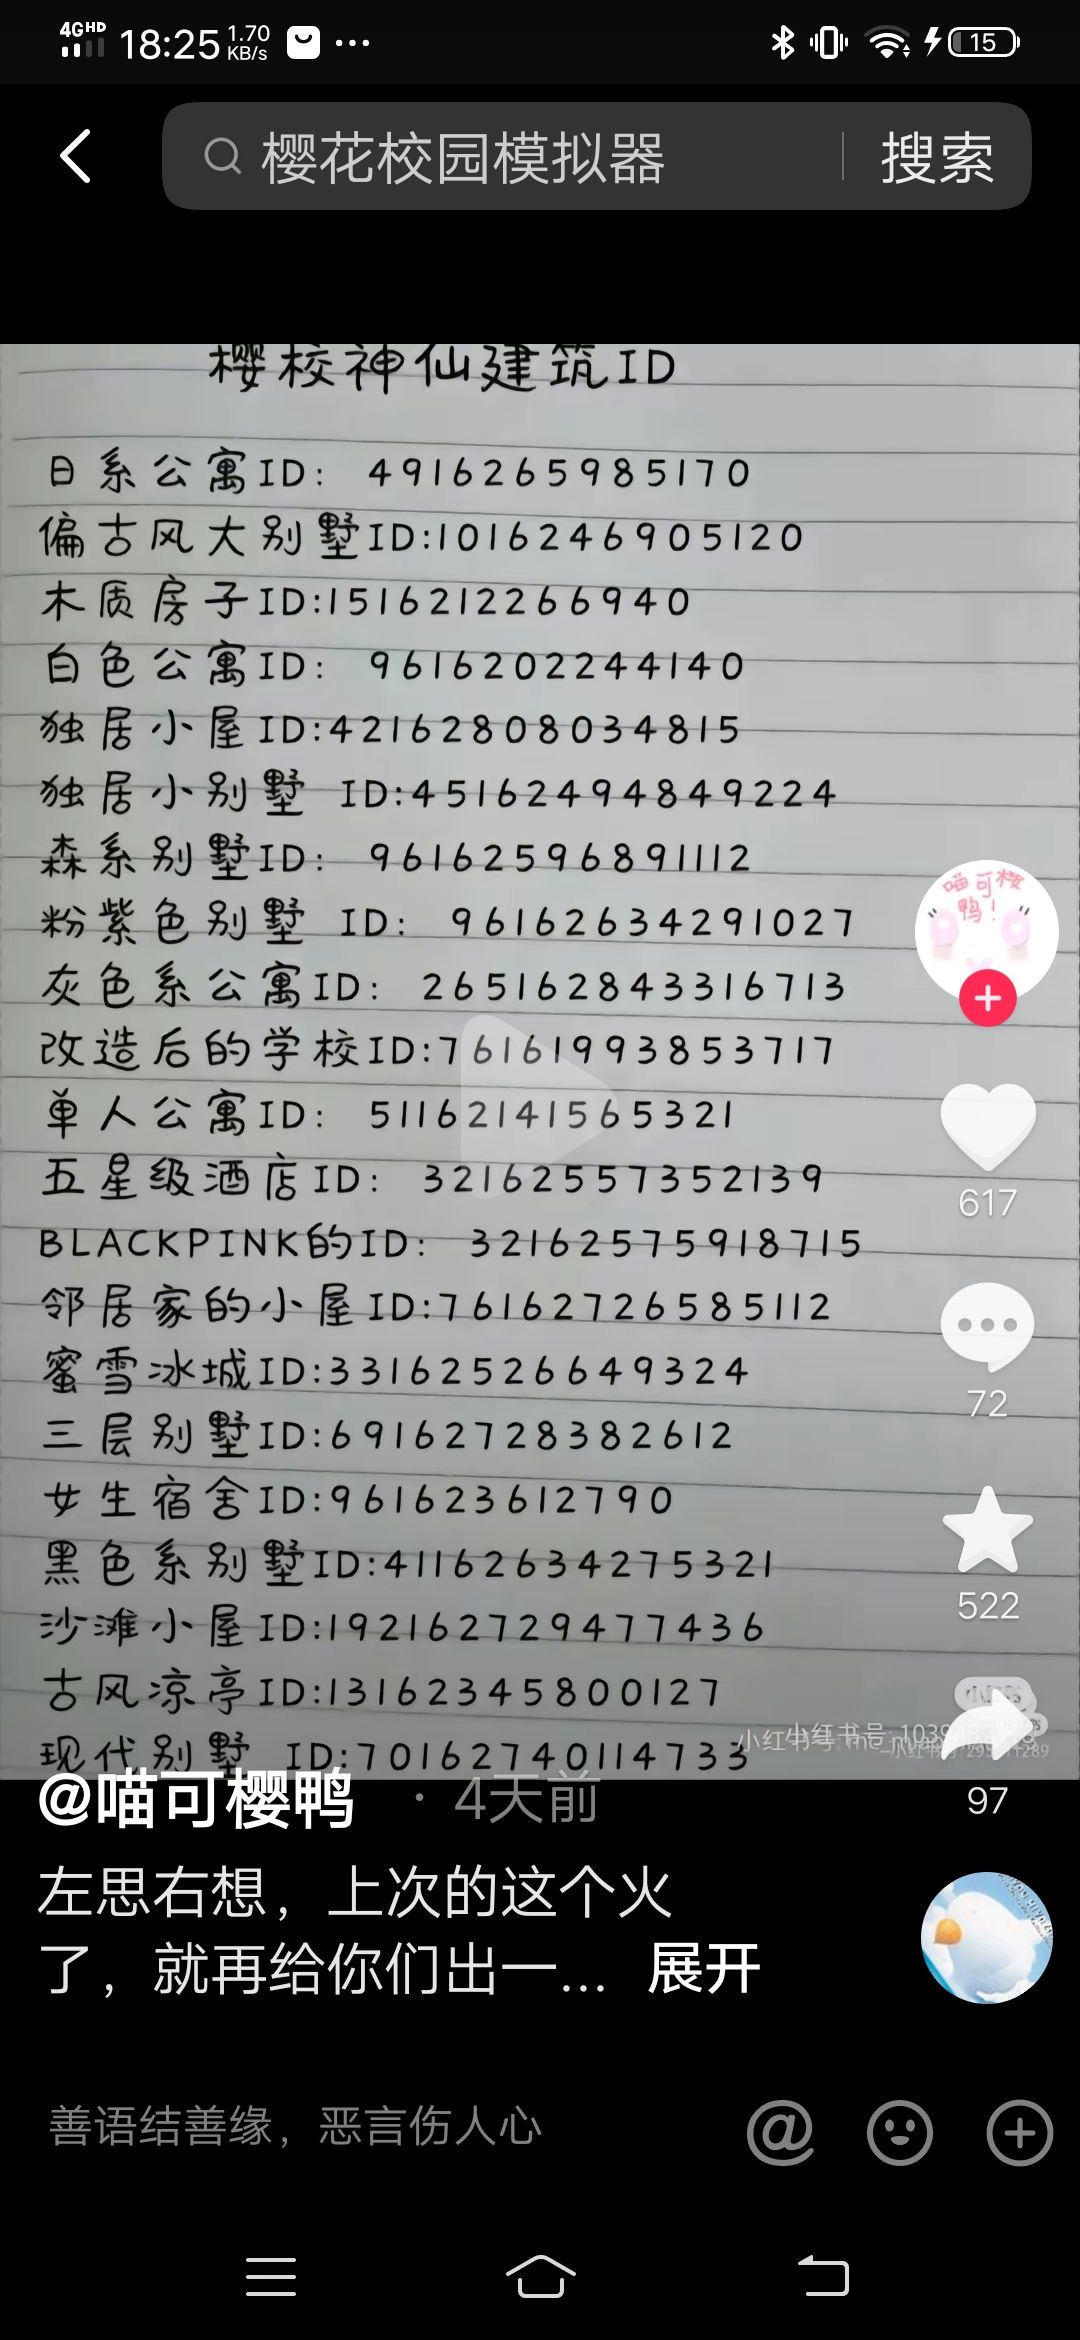 4GHD 18:25 1.70 KB/s ... 15
樱花校园模拟器 搜索
樱校神仙建筑ID
日系公寓ID: 4916265985170
偏古风大别墅ID:1016246905120
木质房子ID:1516212266940
白色公寓ID: 9616202244140
独居小屋ID:42162808034815
独居小别墅 ID:45162494849224
森系别墅ID: 96162596891112
粉紫色别墅 ID: 96162634291027
灰色系公寓ID: 265162843316713
改造后的学校ID:76161993853717
单人公寓ID: 51162141565321
五星级酒店ID: 32162557352139
BLACKPINK的ID: 32162575918715
邻居家的小屋ID:76162726585112
蜜雪冰城ID:33162526649324
三层别墅ID:69162728382612
女生宿舍ID:961623612790
黑色系别墅ID:41162634275321
沙滩小屋ID:192162729477436
古风凉亭ID:13162345800127
现代别墅 ID:70162740114733
喵可樱鸭!
617
72
522
97
小红书号:
@喵可樱鸭 · 4天前
左思右想，上次的这个火
了，就再给你们出一... 展开
善语结善缘，恶言伤人心